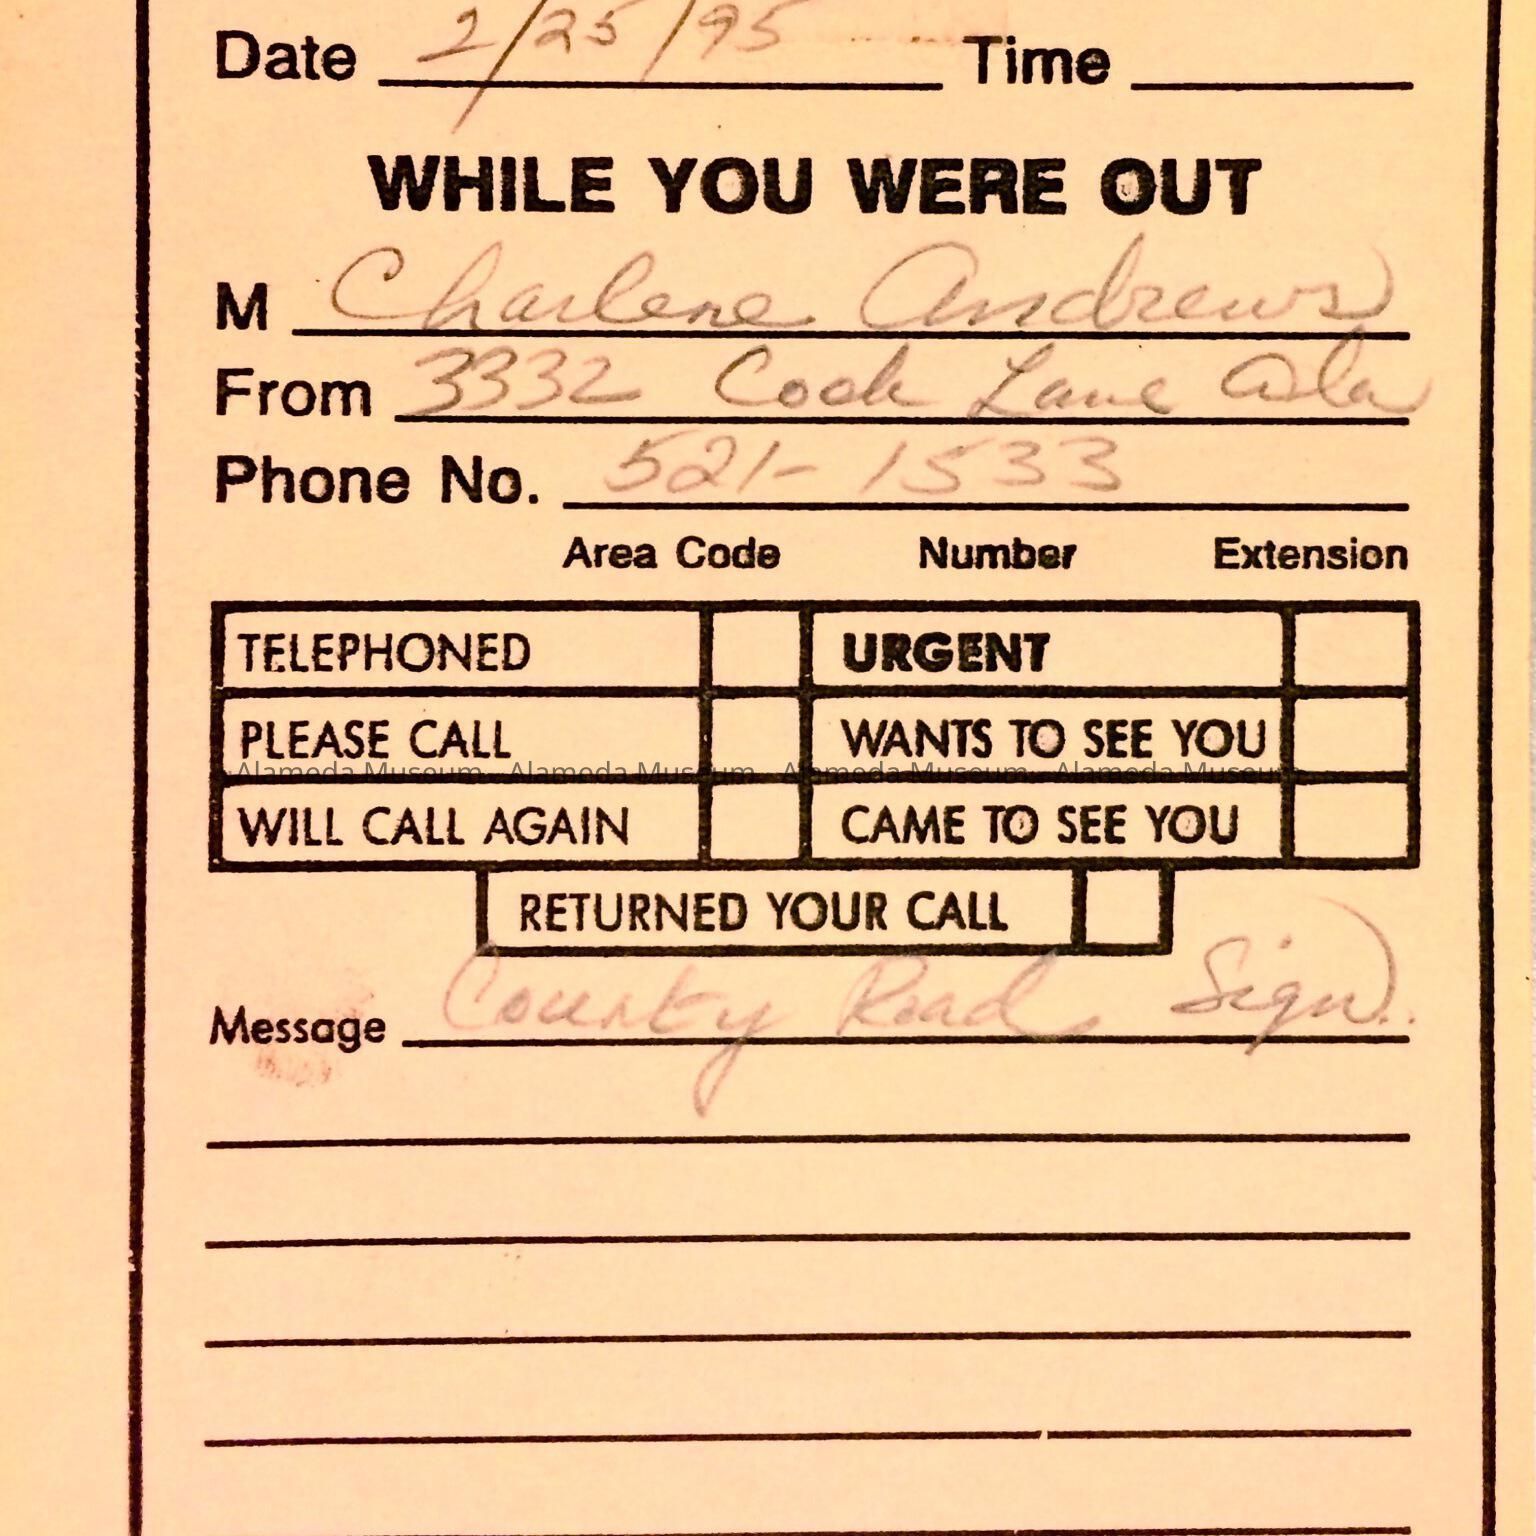 Date 2/25/95 Time
WHILE YOU WERE OUT
M Charlene Andrews
From 3332 Cook Lane Ala
Phone No. 521-1533
Area Code Number Extension
TELEPHONED URGENT
PLEASE CALL WANTS TO SEE YOU
Alameda Museum Alameda Museum Alameda Museum Alameda Museum
WILL CALL AGAIN CAME TO SEE YOU
RETURNED YOUR CALL
Message County Road Sign